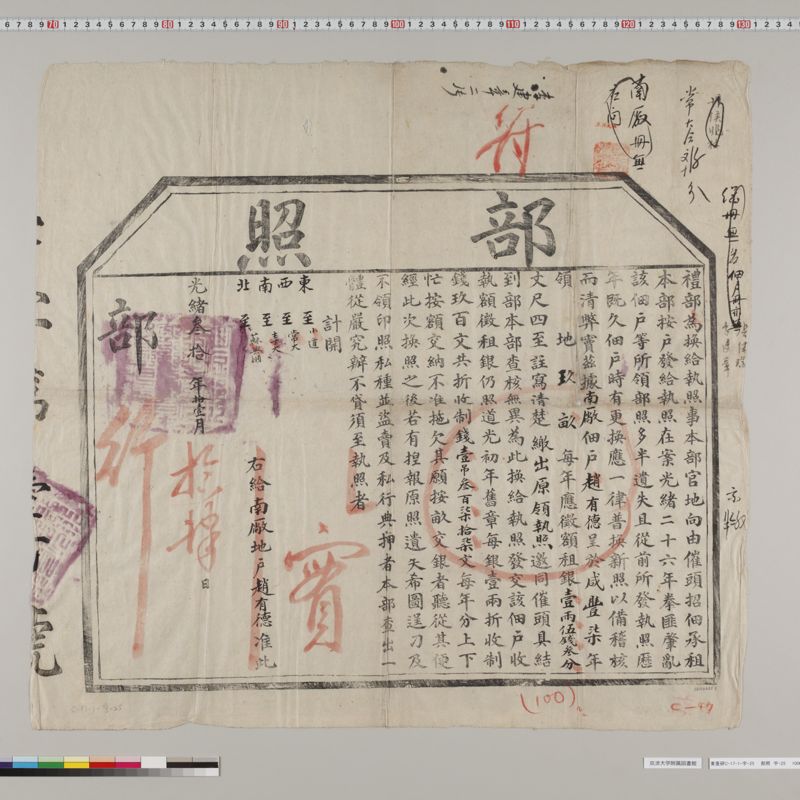 部照
禮部為換給執照事本部官地向由催頭招佃承租
本部按戶發給執照在案光緒二十六年拳匪肇亂
該佃戶等所領部照多半遺失且從前所發執照歷
年既久佃戶時有更換應一律普換新照以備稽核
而清弊竇茲據南廠佃戶趙有德呈於咸豐柒年
領地玖畝每年應徵額租銀壹兩伍錢叁分
丈尺四至註寫清楚繳出原領執照邀同催頭具結
到部本部查核無異為此換給執照發交該佃戶收
執額徵租銀仍照道光初年舊章每銀壹兩折收制
錢玖百文共折收制錢壹吊叁百柒拾柒文每年分上下
忙按額交納不准拖欠其願按畝交銀者聽從其便
經此次換照之後若有捏報原照遺失希圖逞刁及
不領印照私種並盜賣及私行典押者本部查出一
體從嚴究辦不貸須至執照者
計開
東至小道
西至常大
南至
北至
右給南廠地戶趙有德准此
光緒叁拾年拾壹月
日
部
行
實
南廠冊無
右向
符
(100)
C-47
70 80 90 100 110 120 130
筑波大学附属図書館